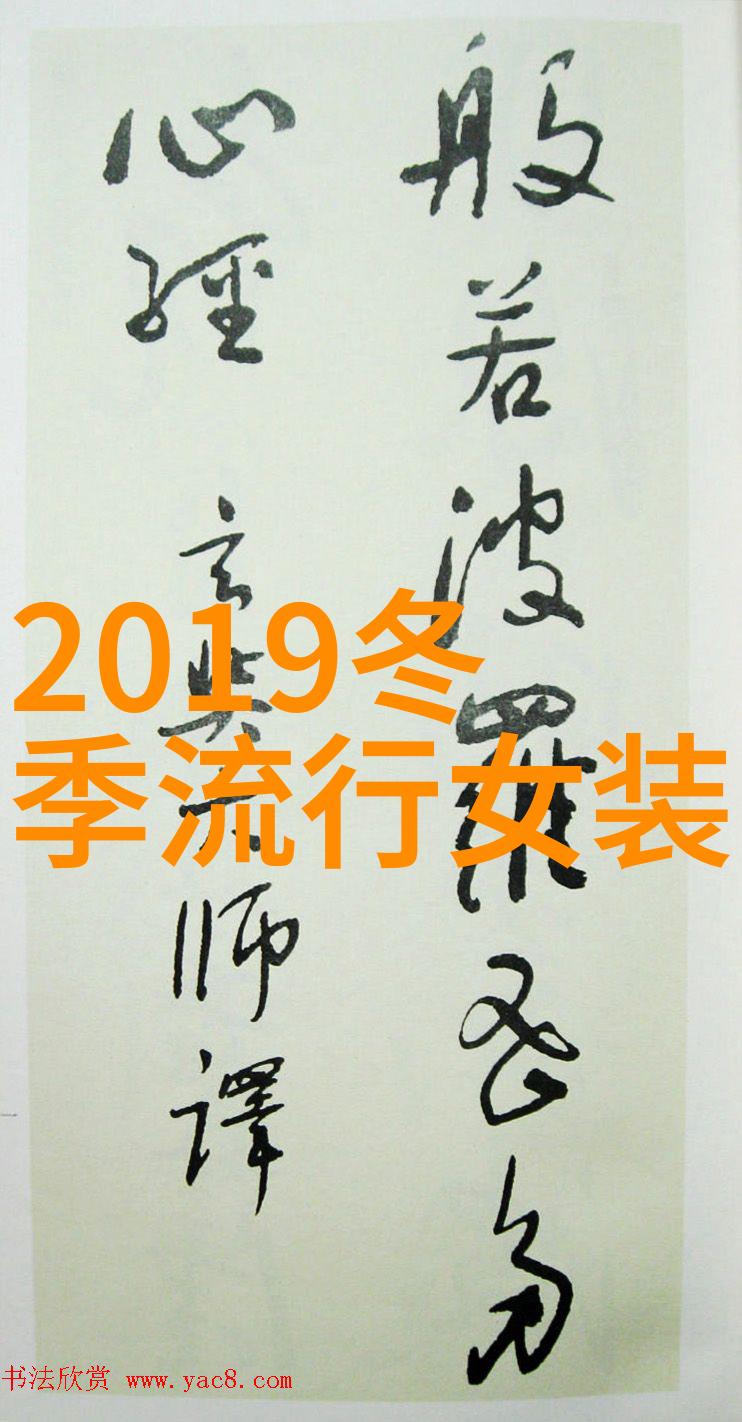 般若波羅蜜多
心經 玄奘大師譯
2019冬
季流行女装
书法欣赏 www.yac8.com